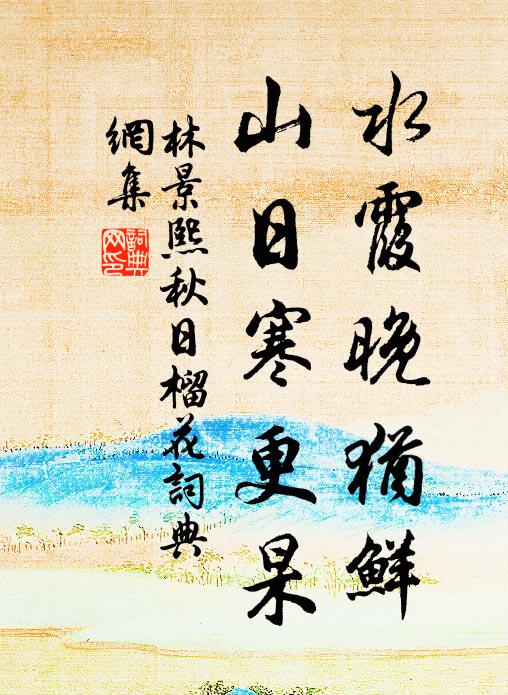 水霞晚猶鮮
山日寒更杲
林景熙秋日榴花詞典
網集
詞典網印